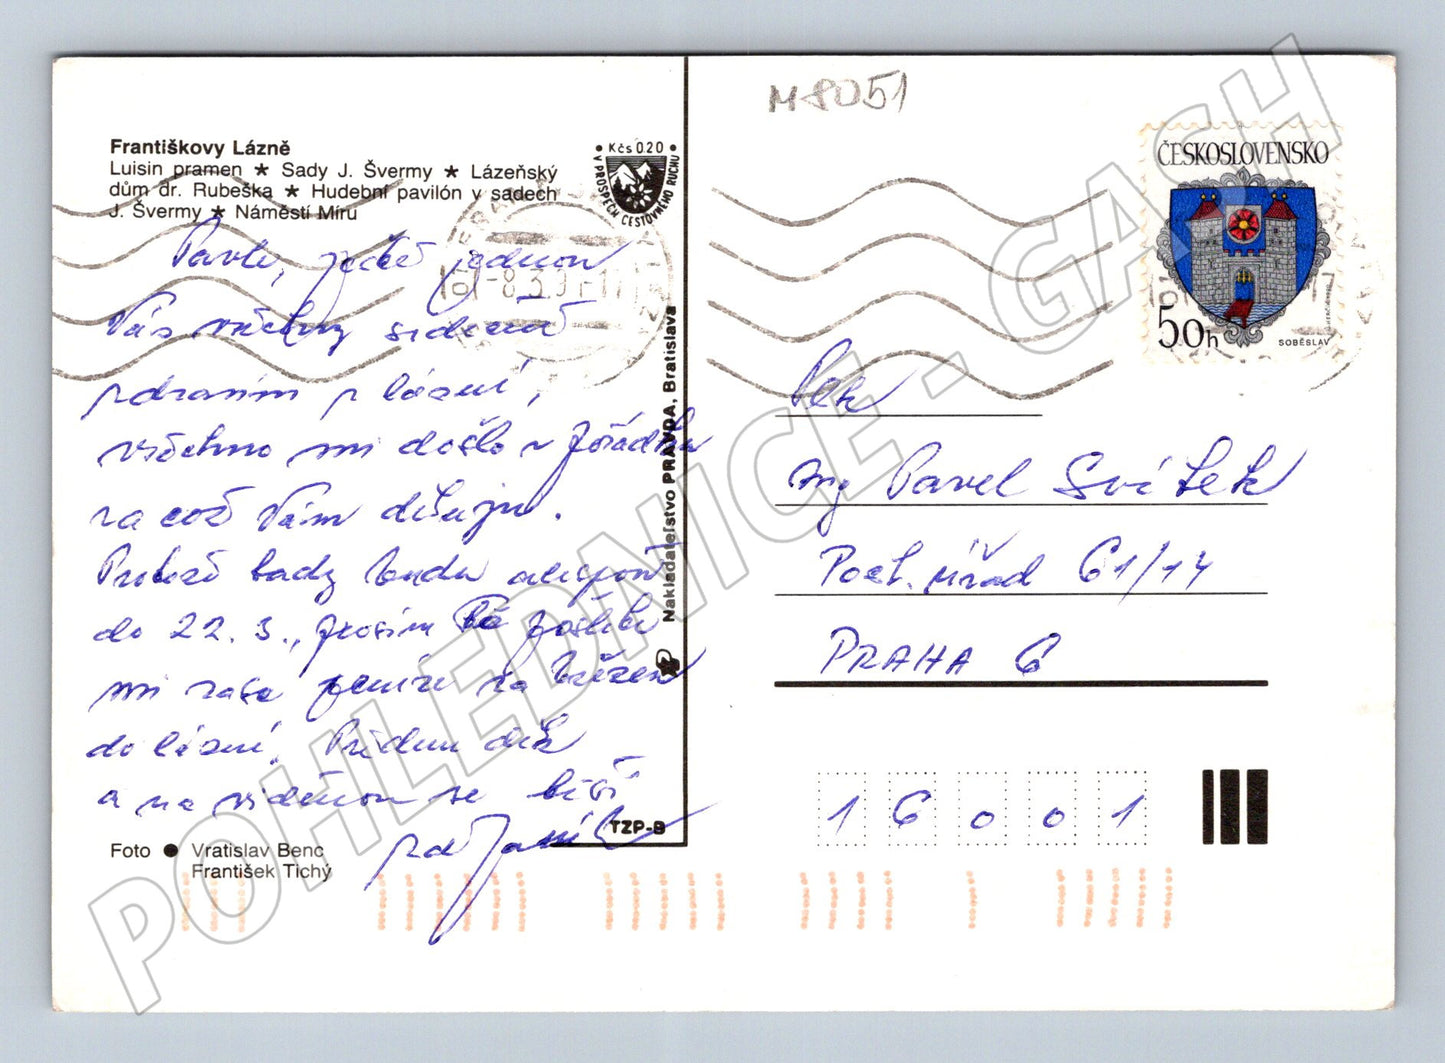 M 8051
Františkovy Lázně
Luisin pramen ★ Sady J. Švermy ★ Lázeňský
dům dr. Rubeška ★ Hudební pavilón v sadech
J. Švermy ★ Náměstí Míru
• Kčs 0.20 •
V PROSPĚCH CESTOVNÉHO RUCHU
ČESKOSLOVENSKO
50h
SOBĚSLAV
-8.3.91-17
Pavle, ještě jednou
Vás všechny srdečně
zdravím z lázní,
všechno mi došlo v pořádku
za což Vám děkuji.
Protože tady budu alespoň
do 22. 3., prosím pošlete
mi zase peníze za březen
do lázní. Předem dík
a na viděnou se těší
Nakladatelstvo PRAVDA, Bratislava
TZP-B
Foto ● Vratislav Benc
František Tichý
Ing Pavel Svítek
Pošt. úřad 61/14
PRAHA 6
16001
POHLEDNICE - GASH